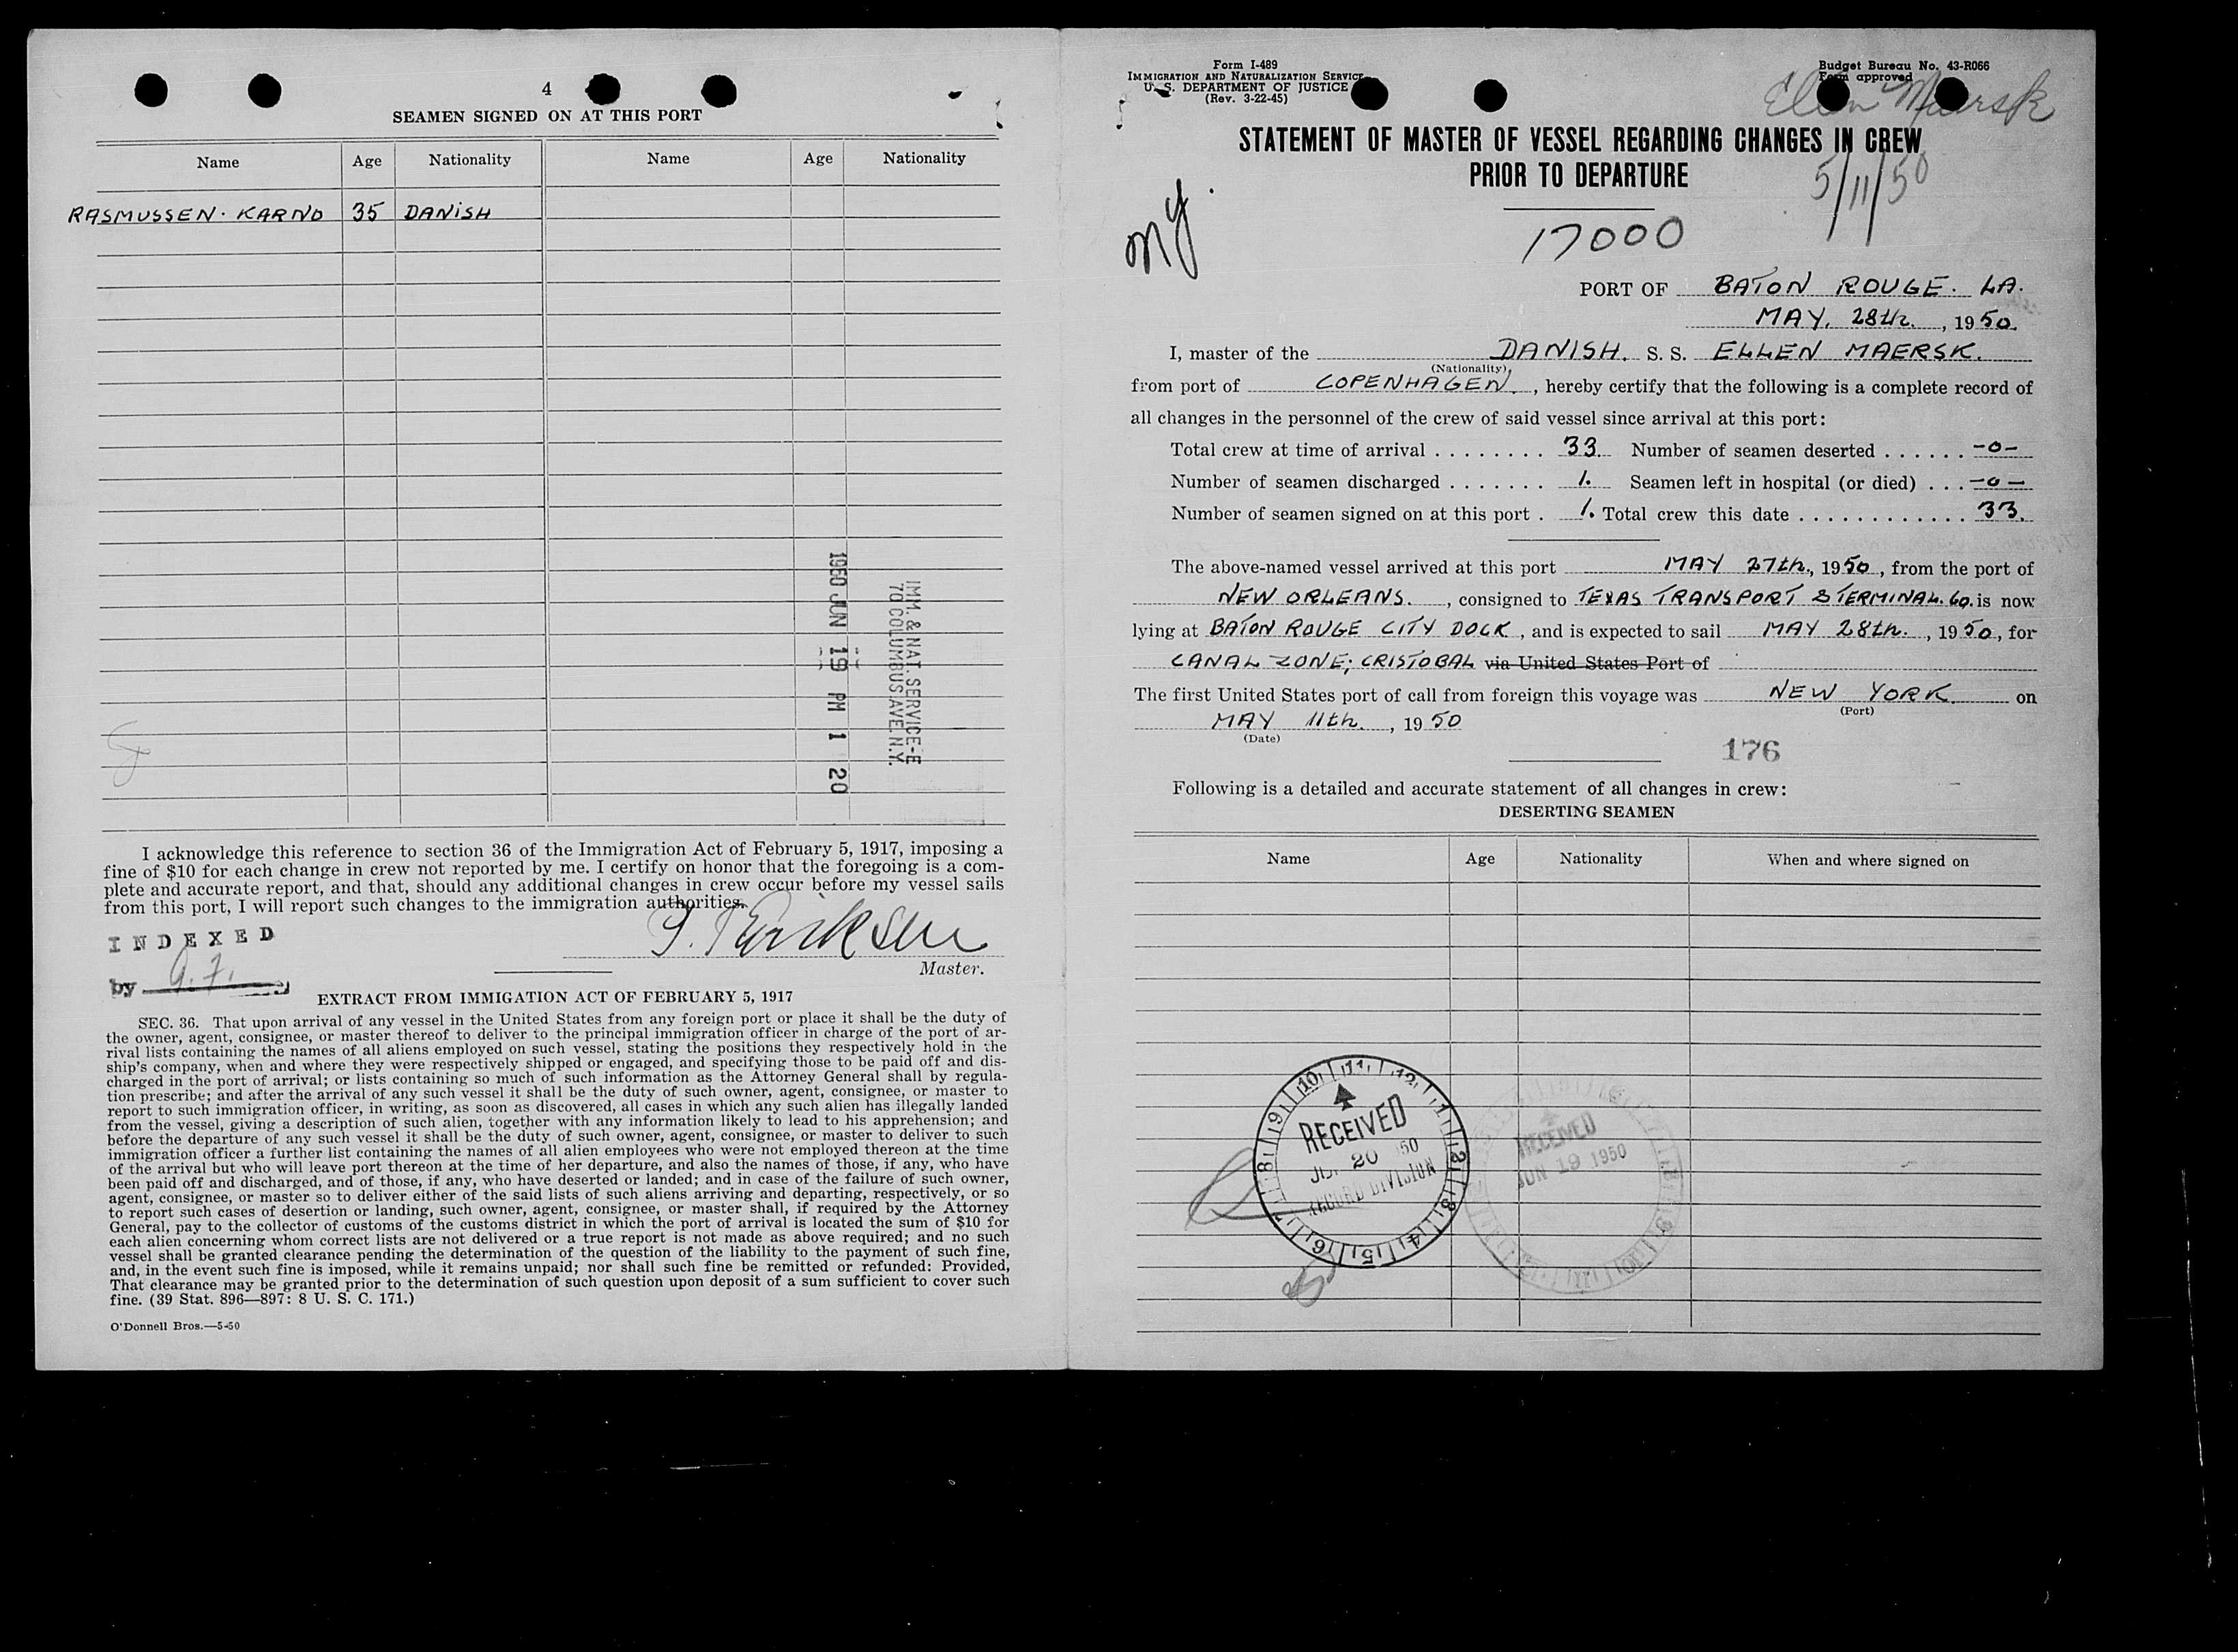 4
SEAMEN SIGNED ON AT THIS PORT
Name Age Nationality Name Age Nationality
RASMUSSEN. KARNO 35 DANISH
1950 JUN 19 PM 1 20
IMM. & NAT. SERVICE-E
70 COLUMBUS AVE. N.Y.
I acknowledge this reference to section 36 of the Immigration Act of February 5, 1917, imposing a
fine of $10 for each change in crew not reported by me. I certify on honor that the foregoing is a com-
plete and accurate report, and that, should any additional changes in crew occur before my vessel sails
from this port, I will report such changes to the immigration authorities.
INDEXED
Eriksen
by
Master.
EXTRACT FROM IMMIGATION ACT OF FEBRUARY 5, 1917
SEC. 36. That upon arrival of any vessel in the United States from any foreign port or place it shall be the duty of
the owner, agent, consignee, or master thereof to deliver to the principal immigration officer in charge of the port of ar-
rival lists containing the names of all aliens employed on such vessel, stating the positions they respectively hold in the
ship's company, when and where they were respectively shipped or engaged, and specifying those to be paid off and dis-
charged in the port of arrival; or lists containing so much of such information as the Attorney General shall by regula-
tion prescribe; and after the arrival of any such vessel it shall be the duty of such owner, agent, consignee, or master to
report to such immigration officer, in writing, as soon as discovered, all cases in which any such alien has illegally landed
from the vessel, giving a description of such alien, together with any information likely to lead to his apprehension; and
before the departure of any such vessel it shall be the duty of such owner, agent, consignee, or master to deliver to such
immigration officer a further list containing the names of all alien employees who were not employed thereon at the time
of the arrival but who will leave port thereon at the time of her departure, and also the names of those, if any, who have
been paid off and discharged, and of those, if any, who have deserted or landed; and in case of the failure of such owner,
agent, consignee, or master so to deliver either of the said lists of such aliens arriving and departing, respectively, or so
to report such cases of desertion or landing, such owner, agent, consignee, or master shall, if required by the Attorney
General, pay to the collector of customs of the customs district in which the port of arrival is located the sum of $10 for
each alien concerning whom correct lists are not delivered or a true report is not made as above required; and no such
vessel shall be granted clearance pending the determination of the question of the liability to the payment of such fine,
and, in the event such fine is imposed, while it remains unpaid; nor shall such fine be remitted or refunded: Provided,
That clearance may be granted prior to the determination of such question upon deposit of a sum sufficient to cover such
fine. (39 Stat. 896—897: 8 U. S. C. 171.)
O'Donnell Bros.—5-50
Form I-489
IMMIGRATION AND NATURALIZATION SERVICE
U. S. DEPARTMENT OF JUSTICE
(Rev. 3-22-45)
Budget Bureau No. 43-R066
Form approved
Ellen Maersk
STATEMENT OF MASTER OF VESSEL REGARDING CHANGES IN CREW
PRIOR TO DEPARTURE
5/11/50
ny.
17000
PORT OF BATON ROUGE. LA.
MAY. 28th. , 1950.
I, master of the DANISH. S. S. ELLEN MAERSK.
(Nationality)
from port of COPENHAGEN. , hereby certify that the following is a complete record of
all changes in the personnel of the crew of said vessel since arrival at this port:
Total crew at time of arrival . . . . . . . . 33. Number of seamen deserted . . . . . . -0-
Number of seamen discharged . . . . . . . 1. Seamen left in hospital (or died) . . . -0-
Number of seamen signed on at this port . 1. Total crew this date . . . . . . . . . . . . . 33.
The above-named vessel arrived at this port MAY 27th., 1950, from the port of
NEW ORLEANS. , consigned to TEXAS TRANSPORT & TERMINAL. Co. is now
lying at BATON ROUGE CITY DOCK , and is expected to sail MAY 28th. , 1950, for
CANAL ZONE; CRISTOBAL via United States Port of
The first United States port of call from foreign this voyage was NEW YORK. on
(Port)
MAY 11th. , 1950
(Date)
176
Following is a detailed and accurate statement of all changes in crew:
DESERTING SEAMEN
Name Age Nationality When and where signed on
10 11 12 1 2 3 4 5 6 7 8 9
RECEIVED
20 50
RECORD DIVISION
RECEIVED
JUN 19 1950